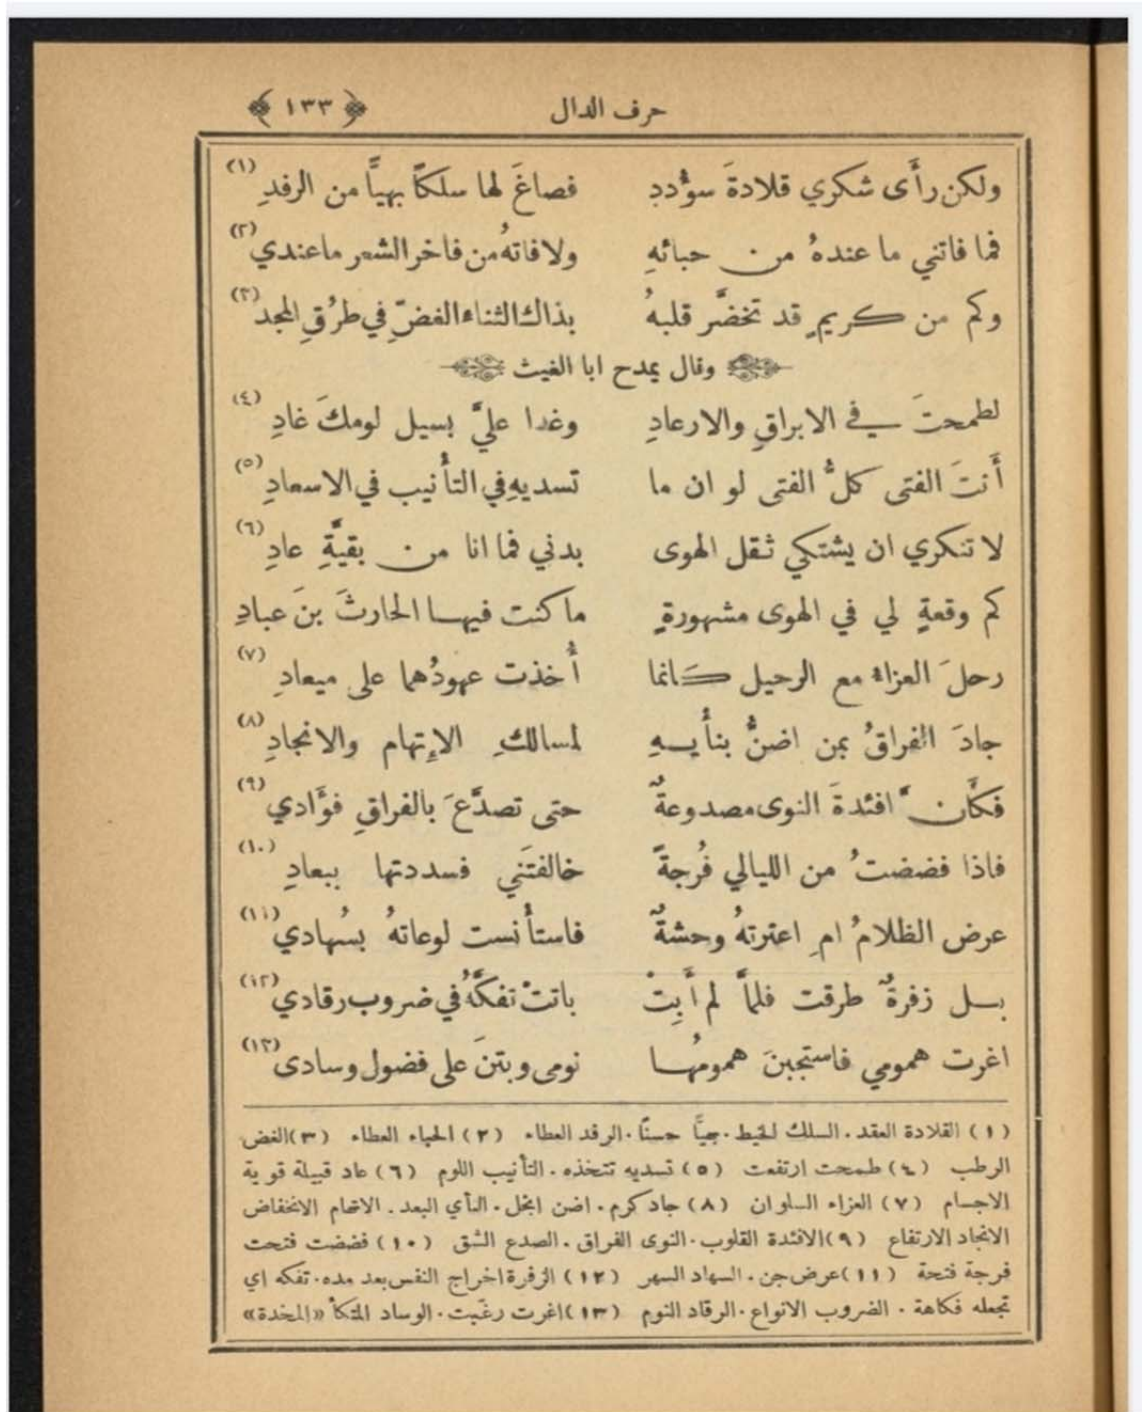 حرف الدال ﴿ ١٣٣ ﴾
ولكن رأَى شكري قلادةَ سوُّددِ فصاغَ لها سلكاً بهياً من الرفدِ (١)
فما فاتني ما عندهُ من حبائهِ ولا فاتهُ من فاخر الشعر ما عندي (٢)
وكم من كريمٍ قد تخضَّر قلبهُ بذاك الثناء الغضّ في طرُقِ المجد (٣)
وقال يمدح ابا الغيث
لطمحتَ في الابراقِ والارعادِ وغدا عليَّ بسيل لومكَ غادِ (٤)
أَنتَ الفتى كلُّ الفتى لو ان ما تسديهِ في التأنيب في الاسعادِ (٥)
لا تنكري ان يشتكي ثقل الهوى بدني فما انا من بقيَّةِ عادِ (٦)
كم وقعةٍ لي في الهوى مشهورةٍ ما كنت فيها الحارثَ بنَ عبادِ
رحلَ العزاءُ مع الرحيل كَانما أُخذت عهودُهما على ميعادِ (٧)
جادَ الفراقُ بمن اضنُّ بنأيهِ لمسالكِ الإِتهام والانجادِ (٨)
فكأَنَّ افئدةَ النوى مصدوعةٌ حتى تصدَّعَ بالفراقِ فوَّادي (٩)
فاذا فضضتُ من الليالي فُرجةً خالفتَني فسددتها ببعادِ (١٠)
عرض الظلامُ امِ اعترتهُ وحشةٌ فاستأنست لوعاتهُ بسُهادي (١١)
بل زفرةٌ طرقت فلمَّا لم أَبِتْ باتتْ تفكَّهُ في ضروب رقادي (١٢)
اغرت همومي فاستجبنَ همومُها نومى وبتنَ على فضول وسادى (١٣)
(١) القلادة العقد . السلك الخيط . بهيًّا حسنًا . الرفد العطاء (٢) الحباء العطاء (٣) الغض
الرطب (٤) طمحت ارتفعت (٥) تسديه تتخذه . التأنيب اللوم (٦) عاد قبيلة قوية
الاجسام (٧) العزاء السلوان (٨) جاد كرم . اضن ابخل . النأي البعد . الاتهام الانخفاض
الانجاد الارتفاع (٩) الافئدة القلوب . النوى الفراق . الصدع الشق (١٠) فضضت فتحت
فرجة فتحة (١١) عرض جن . السهاد السهر (١٢) الزفرة اخراج النفس بعد مده . تفكه اي
تجعله فكاهة . الضروب الانواع . الرقاد النوم (١٣) اغرت رغّبت . الوساد المتكأ «المخدة»